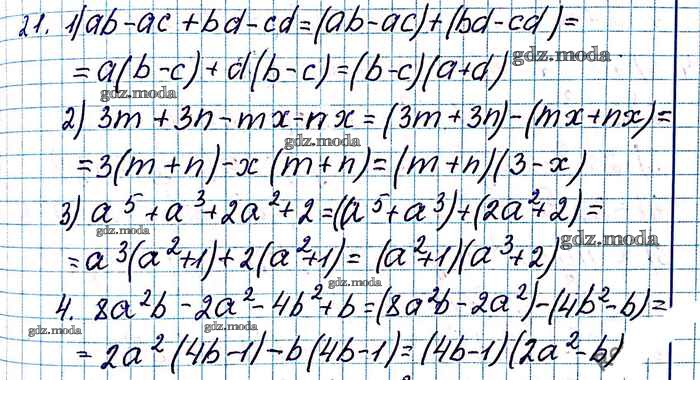 21. 1) ab-ac+bd-cd=(ab-ac)+(bd-cd)=
=a(b-c)+d(b-c)=(b-c)(a+d)
gdz.moda
gdz.moda
2) 3m+3n-mx-nx=(3m+3n)-(mx+nx)=
gdz.moda
=3(m+n)-x(m+n)=(m+n)(3-x)
3) a⁵+a³+2a²+2=((a⁵+a³)+(2a²+2)=
gdz.moda
gdz.moda
=a³(a²+1)+2(a²+1)=(a²+1)(a³+2)
4. 8a²b-2a²-4b²+b=(8a²b-2a²)-(4b²-b)=
gdz.moda
gdz.moda
=2a²(4b-1)-b(4b-1)=(4b-1)(2a²-b)